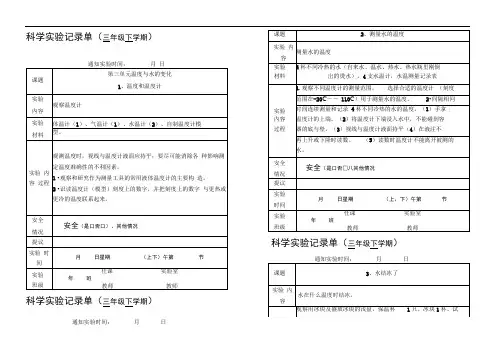 科学实验记录单（三年级下学期）
通知实验时间： 月 日
课题
第三单元温度与水的变化
1、温度和温度计
实验
内容
观察温度计
实验
材料
体温计（1）、气温计（1）、水温计（2）、自制温度计模
型。
实验 内
容 过程
观测温度时，视线与温度计液面应持平，要尽可能消除各 种影响测
定温度准确性的不利因素。
1·观察和研究作为测量工具的常用液体温度计的主要构 造。
2·识读温度计（模型）刻度上的数字，并把刻度上的数字 与更热或
更冷的温度联系起来。
安全
情况
安全（是口否口）、其他情况
提议
实验 时
间
月 日星期 （上下）午第 节
实验
班级
年 班
任课
教师
实验室
教师
科学实验记录单（三年级下学期）
通知实验时间： 月 日
课题
2、测量水的温度
实验 内
容
测量水的温度
实验
材料
4杯不同冷热的水（自来水、温水、热水、热水瓶里刚倒
出的烫水）、4支水温计、水温测量记录表
实验
内容
过程
1.观察不同温度计的测量范围； 选择合适的温度计 （刻度
范围在-20℃－－110℃）用于测量水的温度。 2·间隔相同
时间连续测量和记录4杯不同冷热的水的温度。（1）手拿
温度计的上端。（2）将温度计下端浸入水中，不能碰到容
器的底与壁。（3）视线与温度计液面持平（4）在液柱不
再上升或下降时读数。 （5）读数时温度计不能离开被测的
水。
安全
情况
安全（是口否□八其他情况
提议
实验
时间
月 日星期 （上、下）午第 节
实验
班级
年 班
任课
教师
实验室
教师
科学实验记录单（三年级下学期）
通知实验时间： 月 日
课题
3、水结冰了
实验 内
容
水在什么温度时结冰。
观察用冰块及撒放冰块的浅盘、保温杯 1只、冰块1杯、试